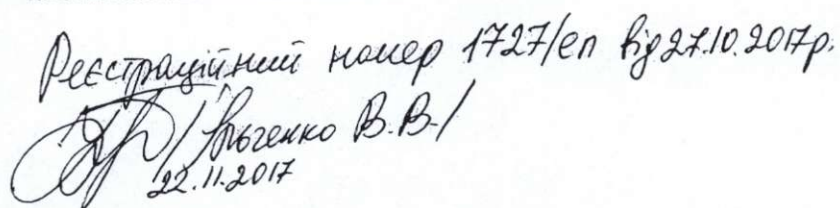 Реєстраційний номер 1727/еп від 27.10.2017р.
/ В.В./
22.11.2017